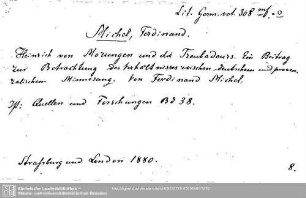 Lit. Germ. rot. 308 mf. - o
Michel, Ferdinand.
Heinrich von Morungen und die Troubadours. Ein Beitrag
zur Betrachtung des Verhältnisses zwischen deutschem und proven-
zalischem Minnesang. Von Ferdinand Michel.
Quellen und Forschungen Bd 38.
Strassburg und London 1880.
8.
Sächsische Landesbibliothek -
Staats- und Universitätsbibliothek Dresden